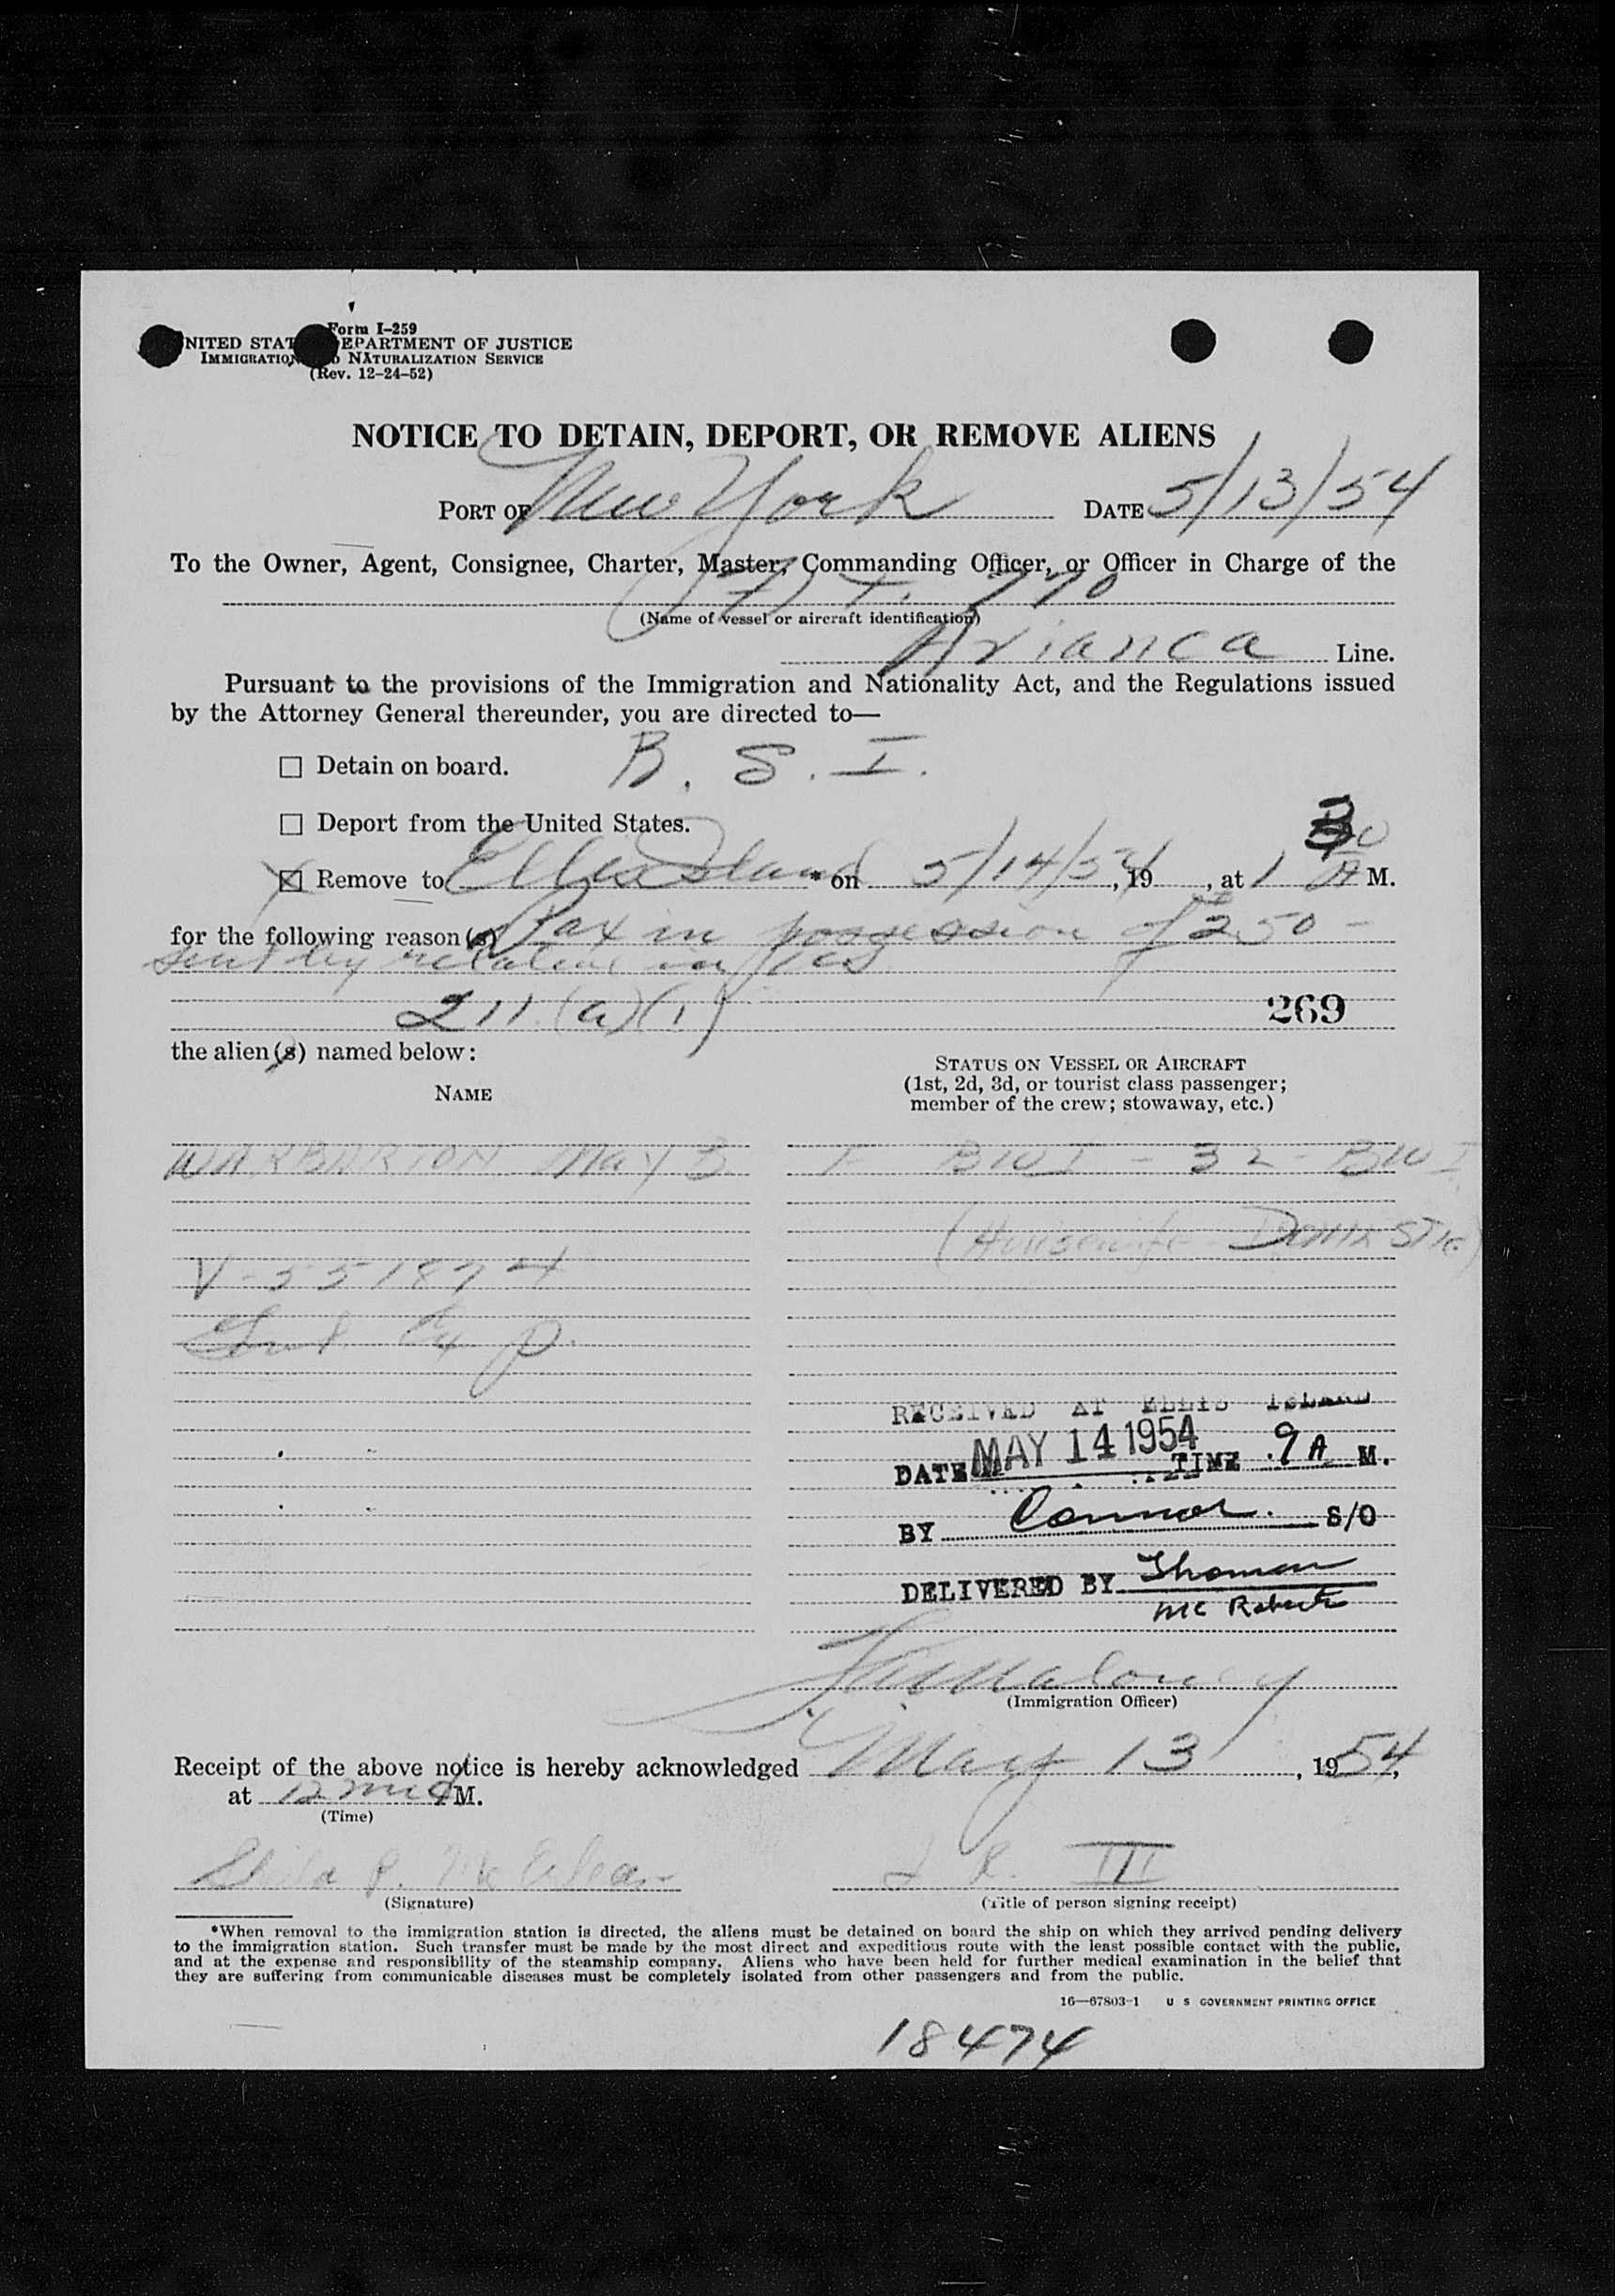 Form I-259
UNITED STATES DEPARTMENT OF JUSTICE
IMMIGRATION AND NATURALIZATION SERVICE
(Rev. 12-24-52)
NOTICE TO DETAIN, DEPORT, OR REMOVE ALIENS
PORT OF New York DATE 5/13/54
To the Owner, Agent, Consignee, Charter, Master, Commanding Officer, or Officer in Charge of the
770
(Name of vessel or aircraft identification)
Avianca Line.
Pursuant to the provisions of the Immigration and Nationality Act, and the Regulations issued
by the Attorney General thereunder, you are directed to—
☐ Detain on board. B. S. I.
☐ Deport from the United States.
☒ Remove to Ellis Island * on 5/14/54, 19, at 1 30 A M.
for the following reason(s) Pax in possession of $250 -
sent by relative in
211 (a)(1) 269
the alien(s) named below:
NAME
STATUS ON VESSEL OR AIRCRAFT
(1st, 2d, 3d, or tourist class passenger;
member of the crew; stowaway, etc.)
WARBARTON May B F BWI - 32 - BWI
(Housewife - Domestic)
V-551874
RECEIVED AT ELLIS ISLAND
DATE MAY 14 1954 TIME 9 A M.
BY Connor S/O
DELIVERED BY Thomas
Mc Roberts
Maloney
(Immigration Officer)
Receipt of the above notice is hereby acknowledged May 13, 1954,
at 12 mid M.
(Time)
III
(Signature)
(Title of person signing receipt)
*When removal to the immigration station is directed, the aliens must be detained on board the ship on which they arrived pending delivery
to the immigration station. Such transfer must be made by the most direct and expeditious route with the least possible contact with the public,
and at the expense and responsibility of the steamship company. Aliens who have been held for further medical examination in the belief that
they are suffering from communicable diseases must be completely isolated from other passengers and from the public.
16—67803-1 U S GOVERNMENT PRINTING OFFICE
18474